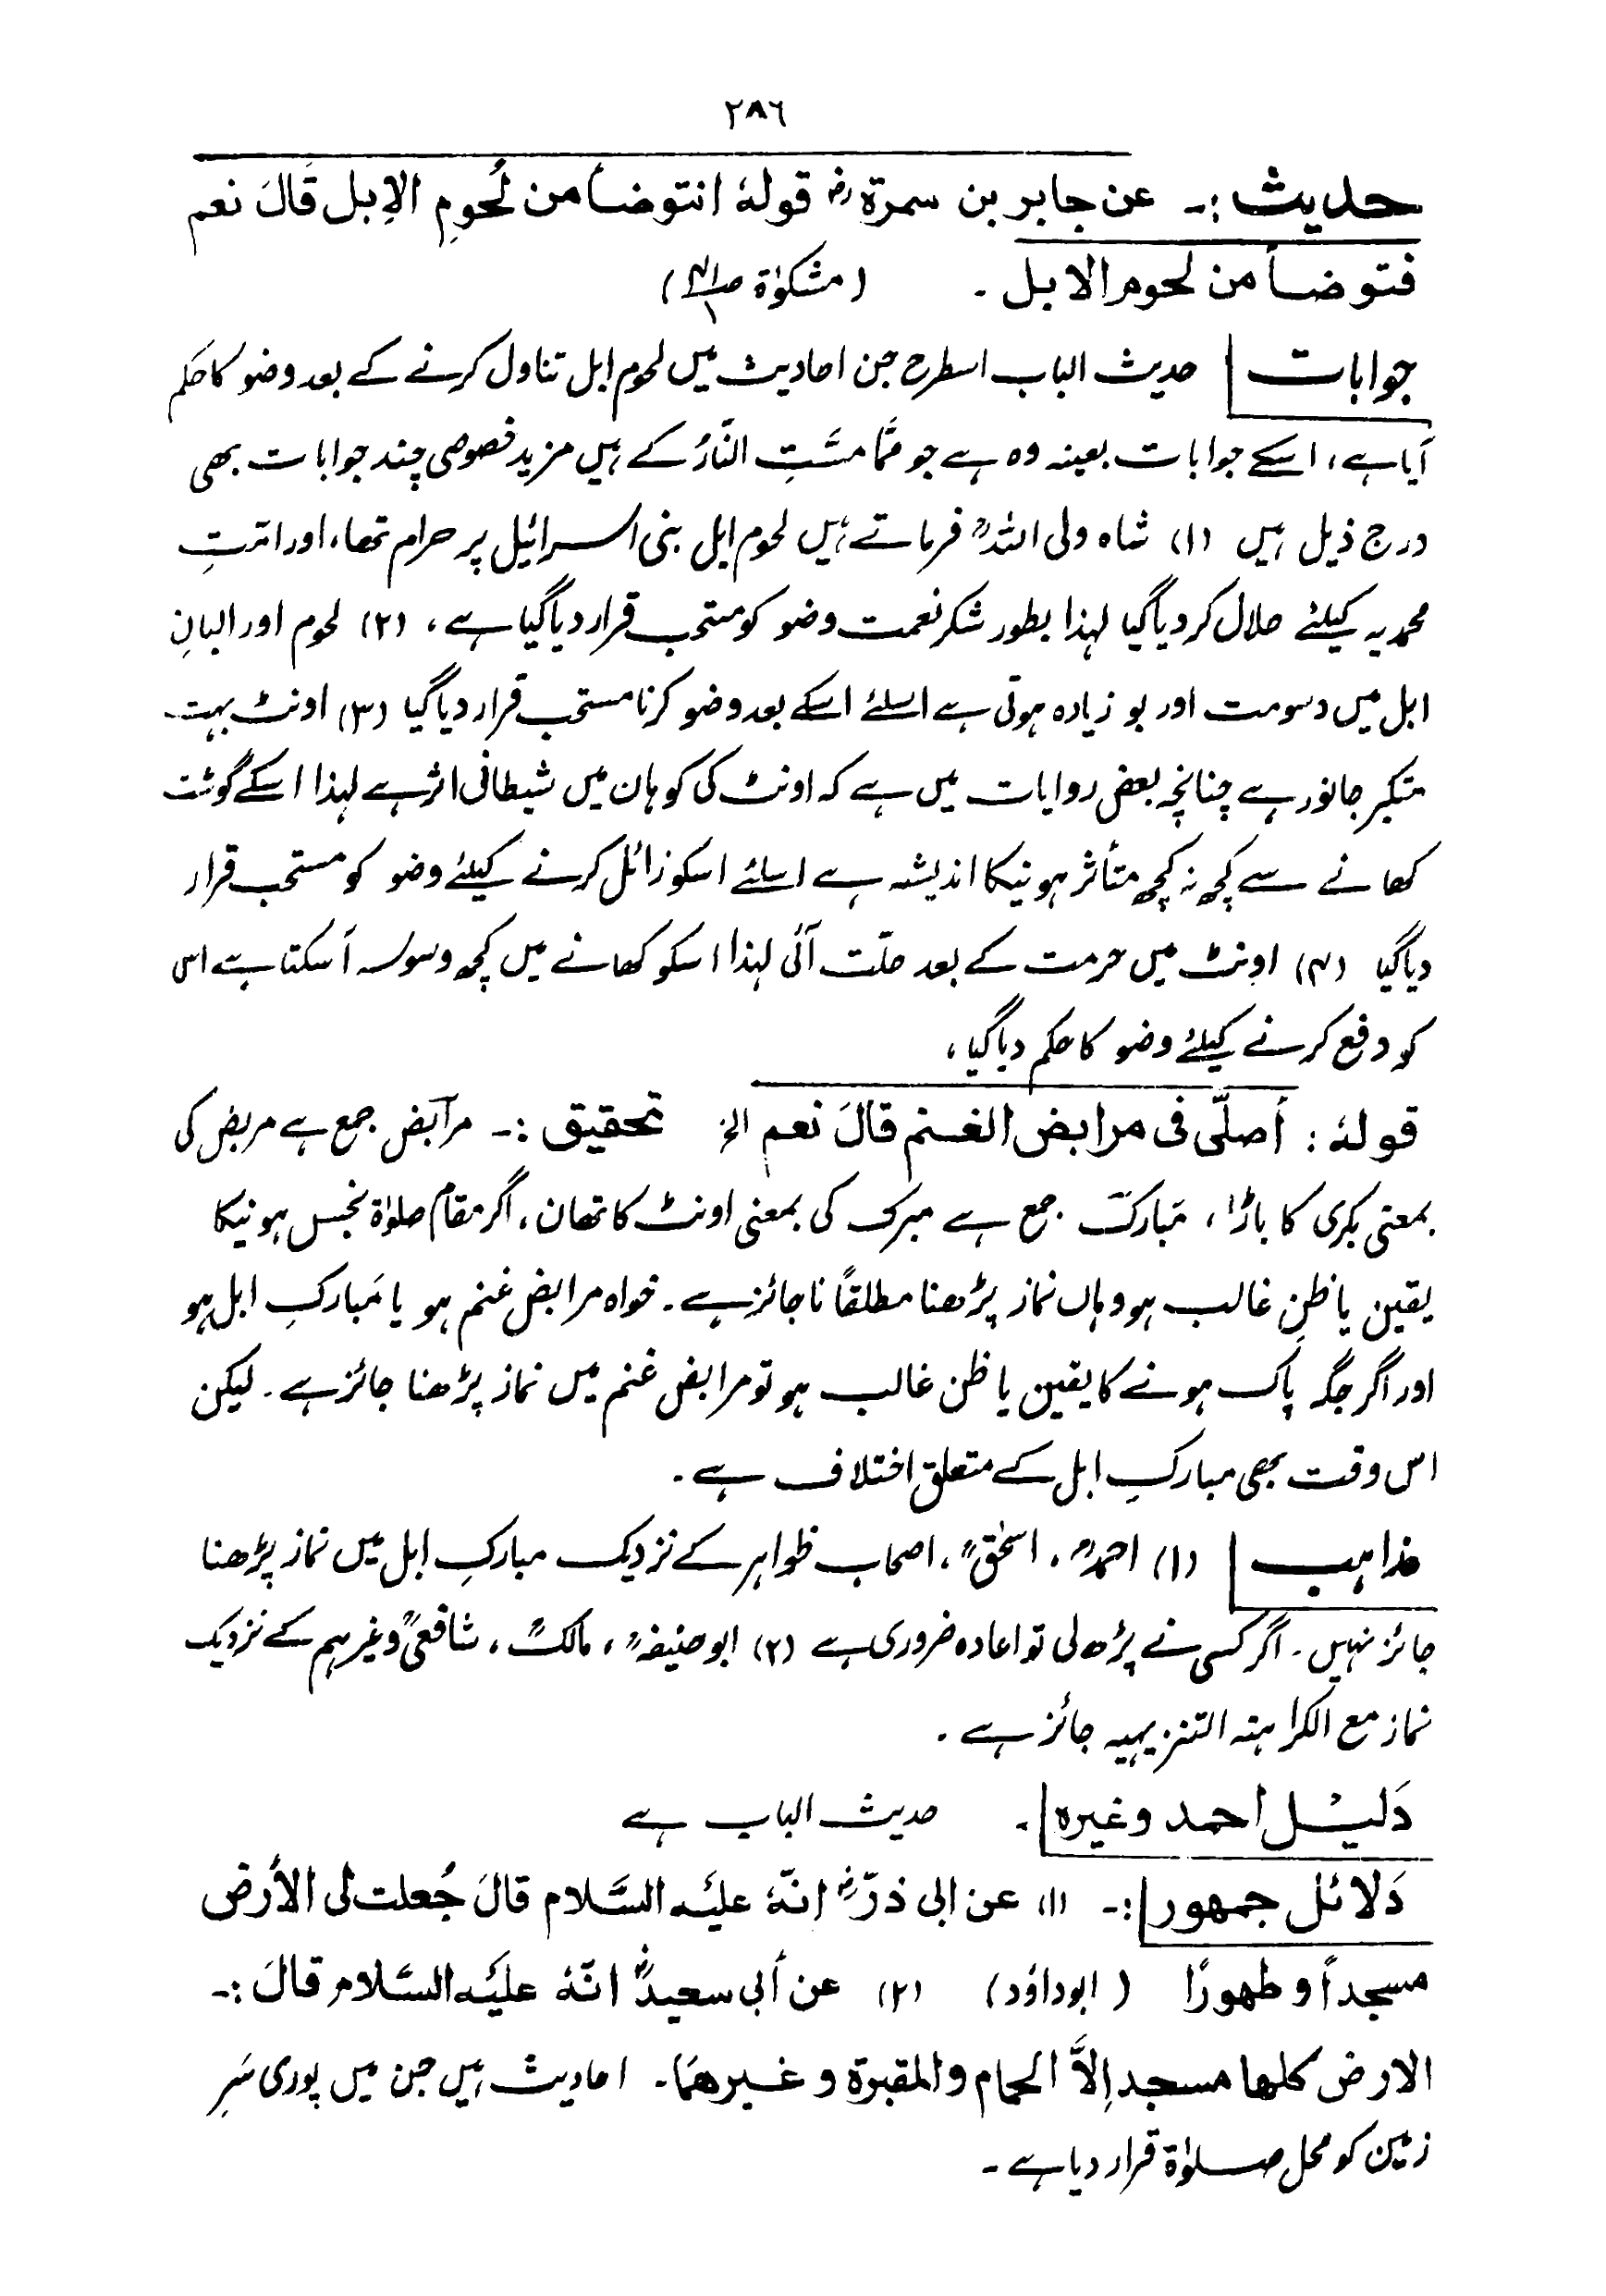 ٢٨٦
حدیث :۔ عن جابر بن سمرۃؓ قولہٗ انتوضأ من لُحومِ الاِبل قَالَ نعم
فتوضأ من لحوم الابل ۔ (مشکوٰۃ ص۴۰/۱)
جوابات حدیث الباب اسطرح جن احادیث میں لحوم ابل تناول کرنے کے بعد وضو کا حکم
آیا ہے، اسکے جوابات بعینہ وہ ہے جو ممَّا مسَّتِ النَّارُ کے ہیں مزید خصوصی چند جوابات بھی
درج ذیل ہیں (۱) شاہ ولی اللہؒ فرماتے ہیں لحوم ابل بنی اسرائیل پر حرام تھا، اور امّتِ
محمدیہ کیلئے حلال کر دیا گیا لہذا بطور شکر نعمت وضو کو مستحب قرار دیا گیا ہے، (۲) لحوم اور البانِ
ابل میں دسومت اور بو زیادہ ہوتی ہے اسلئے اسکے بعد وضو کرنا مستحب قرار دیا گیا (۳) اونٹ بہت
متکبر جانور ہے چنانچہ بعض روایات میں ہے کہ اونٹ کی کوہان میں شیطانی اثر ہے لہذا اسکے گوشت
کھانے سے کچھ نہ کچھ متأثر ہونیکا اندیشہ ہے اسلئے اسکو زائل کرنے کیلئے وضو کو مستحب قرار
دیا گیا (۴) اونٹ میں حرمت کے بعد حلّت آئی لہذا اسکو کھانے میں کچھ وسوسہ آ سکتا ہے اس
کو دفع کرنے کیلئے وضو کا حکم دیا گیا،
قولہٗ : أصلّی فی مرابض الغنم قالَ نعم الخ تحقیق :۔ مرآبض جمع ہے مربض کی
بمعنی بکری کا باڑا، مَبارک جمع ہے مبرک کی بمعنی اونٹ کا تھان، اگر مقام صلوٰۃ نجس ہونیکا
یقین یا ظنِ غالب ہو وہاں نماز پڑھنا مطلقًا ناجائز ہے۔ خواہ مرابض غنم ہو یا مَبارکِ ابل ہو
اور اگر جگہ پاک ہونے کا یقین یا ظن غالب ہو تو مرابض غنم میں نماز پڑھنا جائز ہے۔ لیکن
اس وقت بھی مبارکِ ابل کے متعلق اختلاف ہے۔
مذاہب (۱) احمدؒ، اسحٰقؒ، اصحاب ظواہر کے نزدیک مبارکِ ابل میں نماز پڑھنا
جائز نہیں۔ اگر کسی نے پڑھ لی تو اعادہ ضروری ہے (۲) ابو حنیفہؒ، مالکؒ، شافعیؒ وغیرہم کے نزدیک
نماز مع الکراہتہ التنزیہیہ جائز ہے۔
دَلیْل احمد وغیرہ ۔ حدیث الباب ہے
دَلائل جمہور :۔ (۱) عن ابی ذرّؓ انّہٗ علیَہ السَّلام قالَ جُعلت لی الأرض
مسجداً و طهورًا (ابوداؤد) (۲) عن أبی سعیدؓ انّہٗ علیَہ السَّلام قالَ :۔
الارض کلها مسجد إلاَّ الحمام والمقبرۃ و غیرهمَا۔ احادیث ہیں جن میں پوری سَرِ
زمین کو محل صلوٰۃ قرار دیا ہے۔